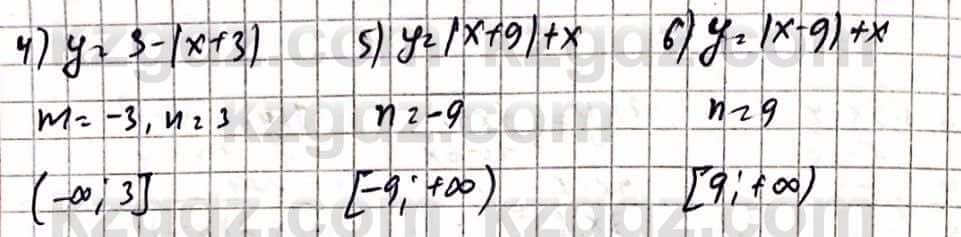 4) y = 3-|x+3| 5) y=|x+9|+x 6) y=|x-9|+x
m=-3, n=3 n=-9 n=9
(-∞; 3] [-9; +∞) [9; +∞)
kzgdz.com